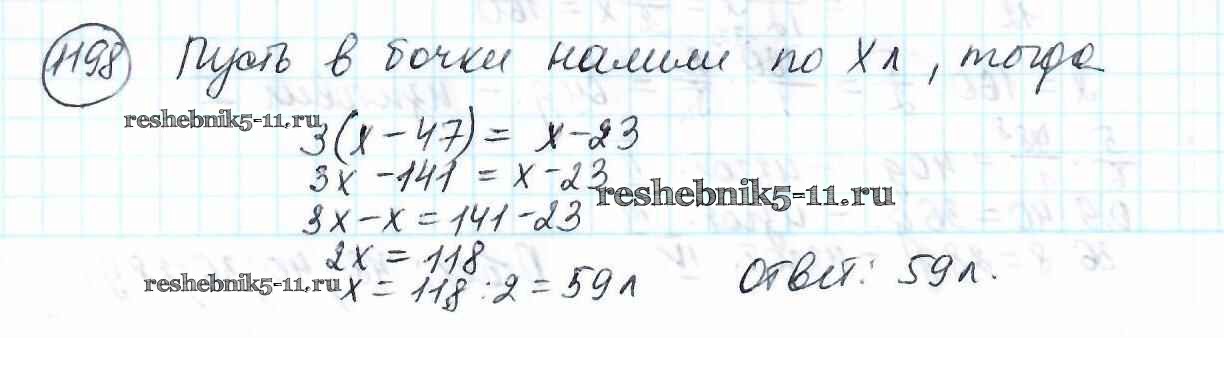 1198 Пусть в бочки налили по x л, тогда
reshebnik5-11.ru
3(x - 47) = x - 23
3x - 141 = x - 23
reshebnik5-11.ru
3x - x = 141 - 23
2x = 118
reshebnik5-11.ru
x = 118 : 2 = 59 л Ответ: 59 л.